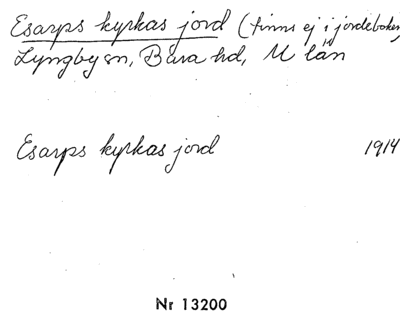 Esarps kyrkas jord (finns ej i jordeboken)
Lyngby sn, Bara hd, M län
Esarps kyrkas jord 1914
Nr 13200